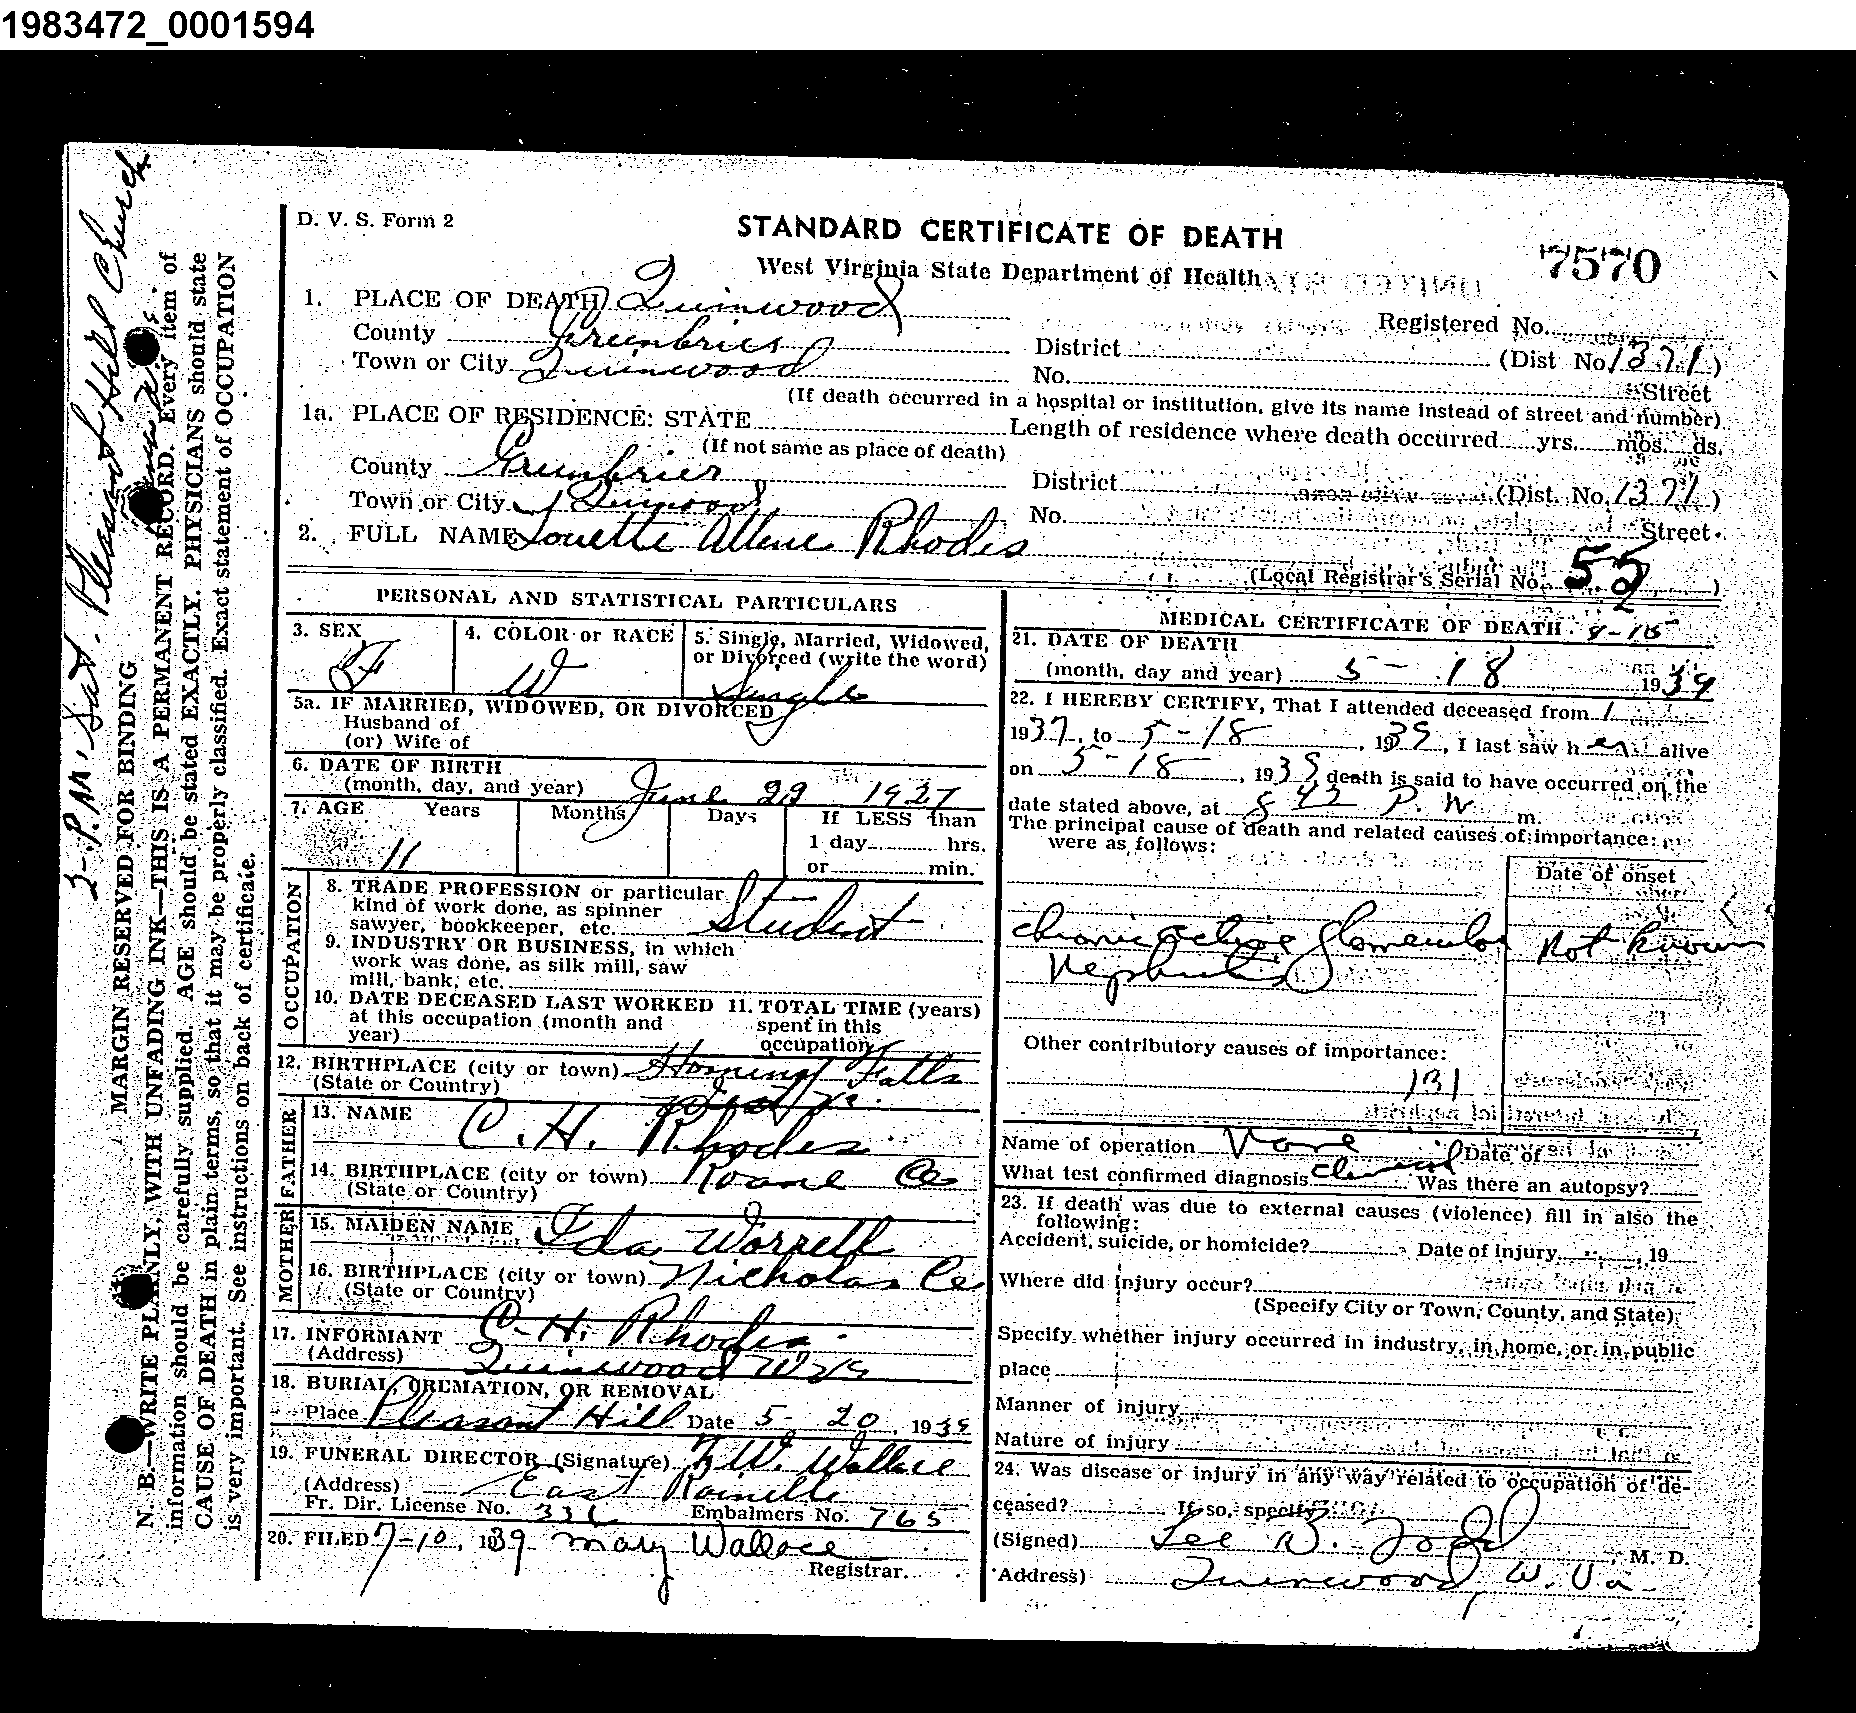 1983472_0001594
D. V. S. Form 2
STANDARD CERTIFICATE OF DEATH
West Virginia State Department of Health
7570
1. PLACE OF DEATH Quinwood
Registered No.
County Greenbrier
District (Dist No. 1371)
Town or City Quinwood
No. Street
(If death occurred in a hospital or institution, give its name instead of street and number)
1a. PLACE OF RESIDENCE: STATE
Length of residence where death occurred yrs. mos. ds.
(If not same as place of death)
County Greenbrier
District (Dist. No. 1371)
Town or City Quinwood
No. Street
2. FULL NAME Rhodes
(Local Registrar's Serial No. 52)
PERSONAL AND STATISTICAL PARTICULARS
3. SEX F
4. COLOR or RACE W
5. Single, Married, Widowed, or Divorced (write the word) Single
5a. IF MARRIED, WIDOWED, OR DIVORCED
Husband of
(or) Wife of
6. DATE OF BIRTH
(month, day, and year) June 29 1927
7. AGE Years Months Days If LESS than
11
1 day hrs.
or min.
OCCUPATION
8. TRADE PROFESSION or particular
kind of work done, as spinner
sawyer, bookkeeper, etc. Student
9. INDUSTRY OR BUSINESS, in which
work was done, as silk mill, saw
mill, bank, etc.
10. DATE DECEASED LAST WORKED
at this occupation (month and
year)
11. TOTAL TIME (years)
spent in this
occupation
12. BIRTHPLACE (city or town) Falls
(State or Country)
FATHER
13. NAME C. H. Rhodes
14. BIRTHPLACE (city or town) Roane Co
(State or Country)
MOTHER
15. MAIDEN NAME Ida Worrell
16. BIRTHPLACE (city or town) Nicholas Co
(State or Country)
17. INFORMANT C. H. Rhodes
(Address) Quinwood W Va
18. BURIAL, CREMATION, OR REMOVAL
Place Pleasant Hill Date 5- 20, 1939
19. FUNERAL DIRECTOR (Signature) W. Wallace
(Address) East Rainelle
Fr. Dir. License No. 336 Embalmers No. 765
20. FILED 7-10, 1939 Mary Wallace
Registrar.
MEDICAL CERTIFICATE OF DEATH
21. DATE OF DEATH
(month, day and year) 5- 18 1939
22. I HEREBY CERTIFY, That I attended deceased from 1
1937, to 5-18, 1939, I last saw her alive
on 5-18, 1939 death is said to have occurred on the
date stated above, at 8 43 P. m.
The principal cause of death and related causes of importance
were as follows:
Date of onset
chronic active glomerular Not known
Nephritis
Other contributory causes of importance:
131
Name of operation None Date of
What test confirmed diagnosis clinical Was there an autopsy?
23. If death was due to external causes (violence) fill in also the
following:
Accident, suicide, or homicide? Date of injury , 19
Where did injury occur?
(Specify City or Town, County, and State)
Specify whether injury occurred in industry, in home, or in public
place
Manner of injury
Nature of injury
24. Was disease or injury in any way related to occupation of de-
ceased? If so, specify
(Signed) Lee B. Todd, M. D.
(Address) Quinwood, W. Va.
3-P.M. Sat. Pleasant Hill Church
MARGIN RESERVED FOR BINDING
N. B.—WRITE PLAINLY, WITH UNFADING INK—THIS IS A PERMANENT RECORD. Every item of
information should be carefully supplied. AGE should be stated EXACTLY. PHYSICIANS should state
CAUSE OF DEATH in plain terms, so that it may be properly classified. Exact statement of OCCUPATION
is very important. See instructions on back of certificate.